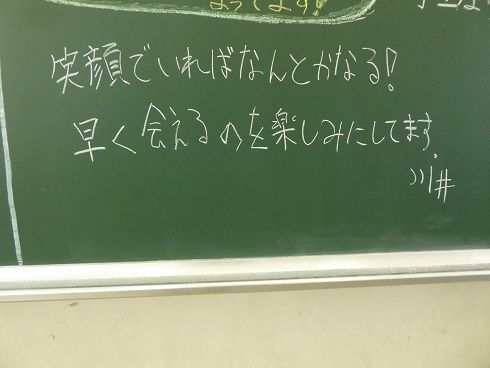 まってます!
笑顔でいればなんとかなる!
早く会えるのを楽しみにしてます。
川井